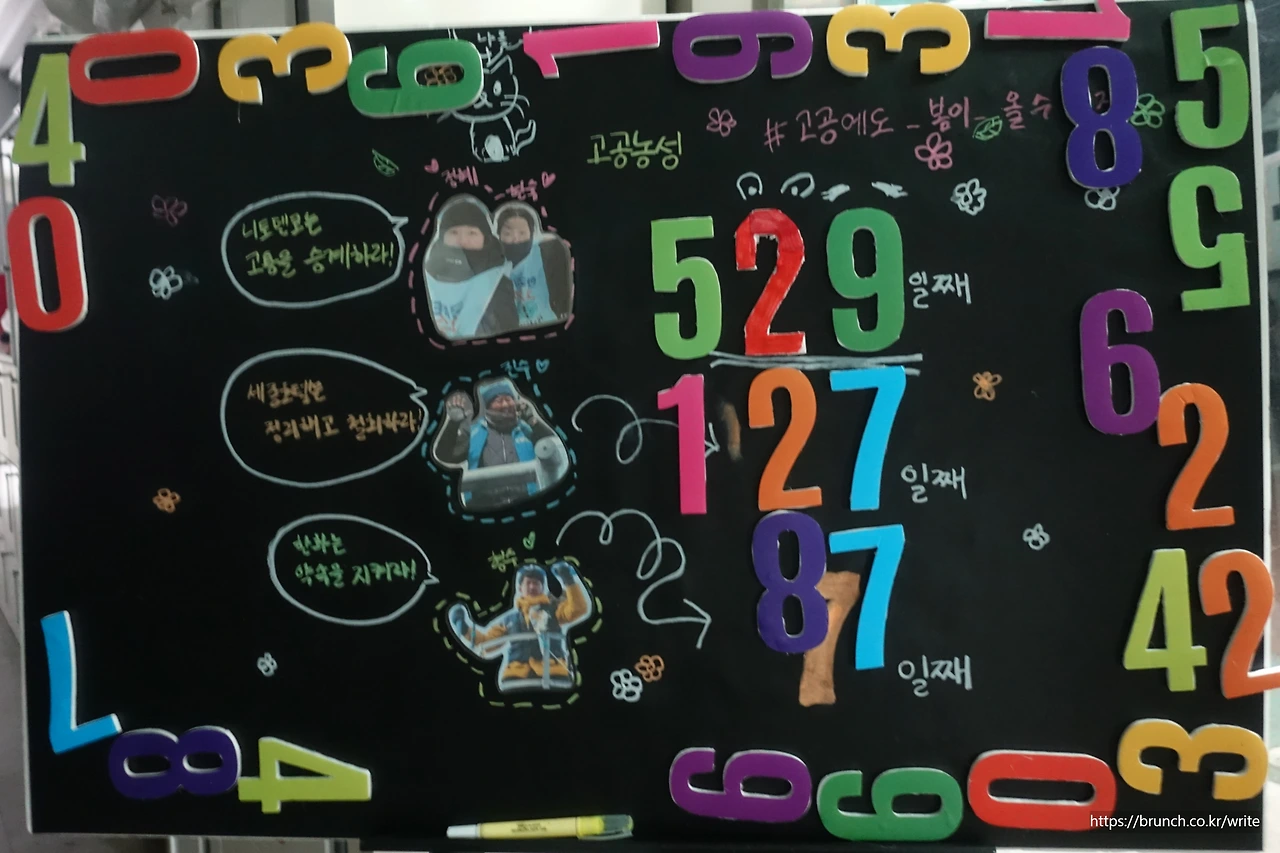 #고공에도_봄이_올수
고공농성
정혜 현숙
니토덴코는
고용을 승계하라!
529일째
진수
세종호텔은
정리해고 철회하라!
127일째
형수
한화는
약속을 지켜라!
87일째
7
4 0 3 6 1 9 3 1 5
8
0
5
6
2
4 2
7
8 4
6 6 0 3
https://brunch.co.kr/write